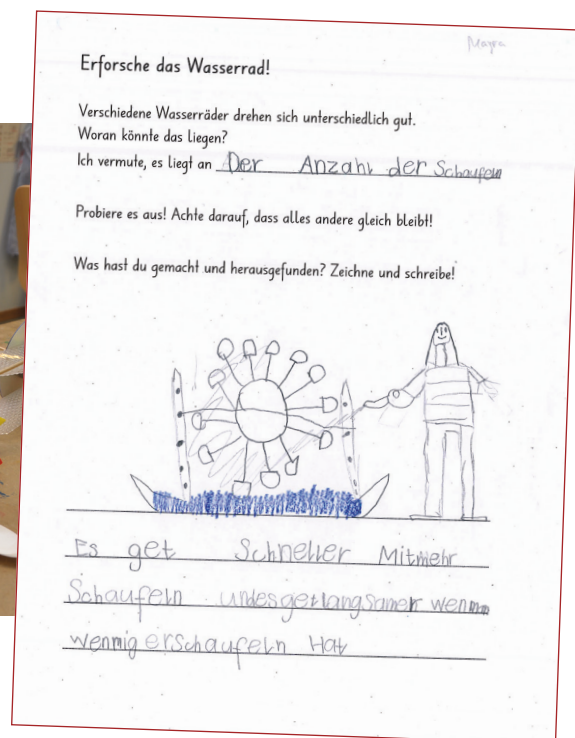 Mayra
Erforsche das Wasserrad!
Verschiedene Wasserräder drehen sich unterschiedlich gut.
Woran könnte das liegen?
Ich vermute, es liegt an Der Anzahl der Schaufeln
Probiere es aus! Achte darauf, dass alles andere gleich bleibt!
Was hast du gemacht und herausgefunden? Zeichne und schreibe!
Es get Schneller Mitmehr
Schaufeln undesgetlangsamer wenn
wennigerschaufeln Hat